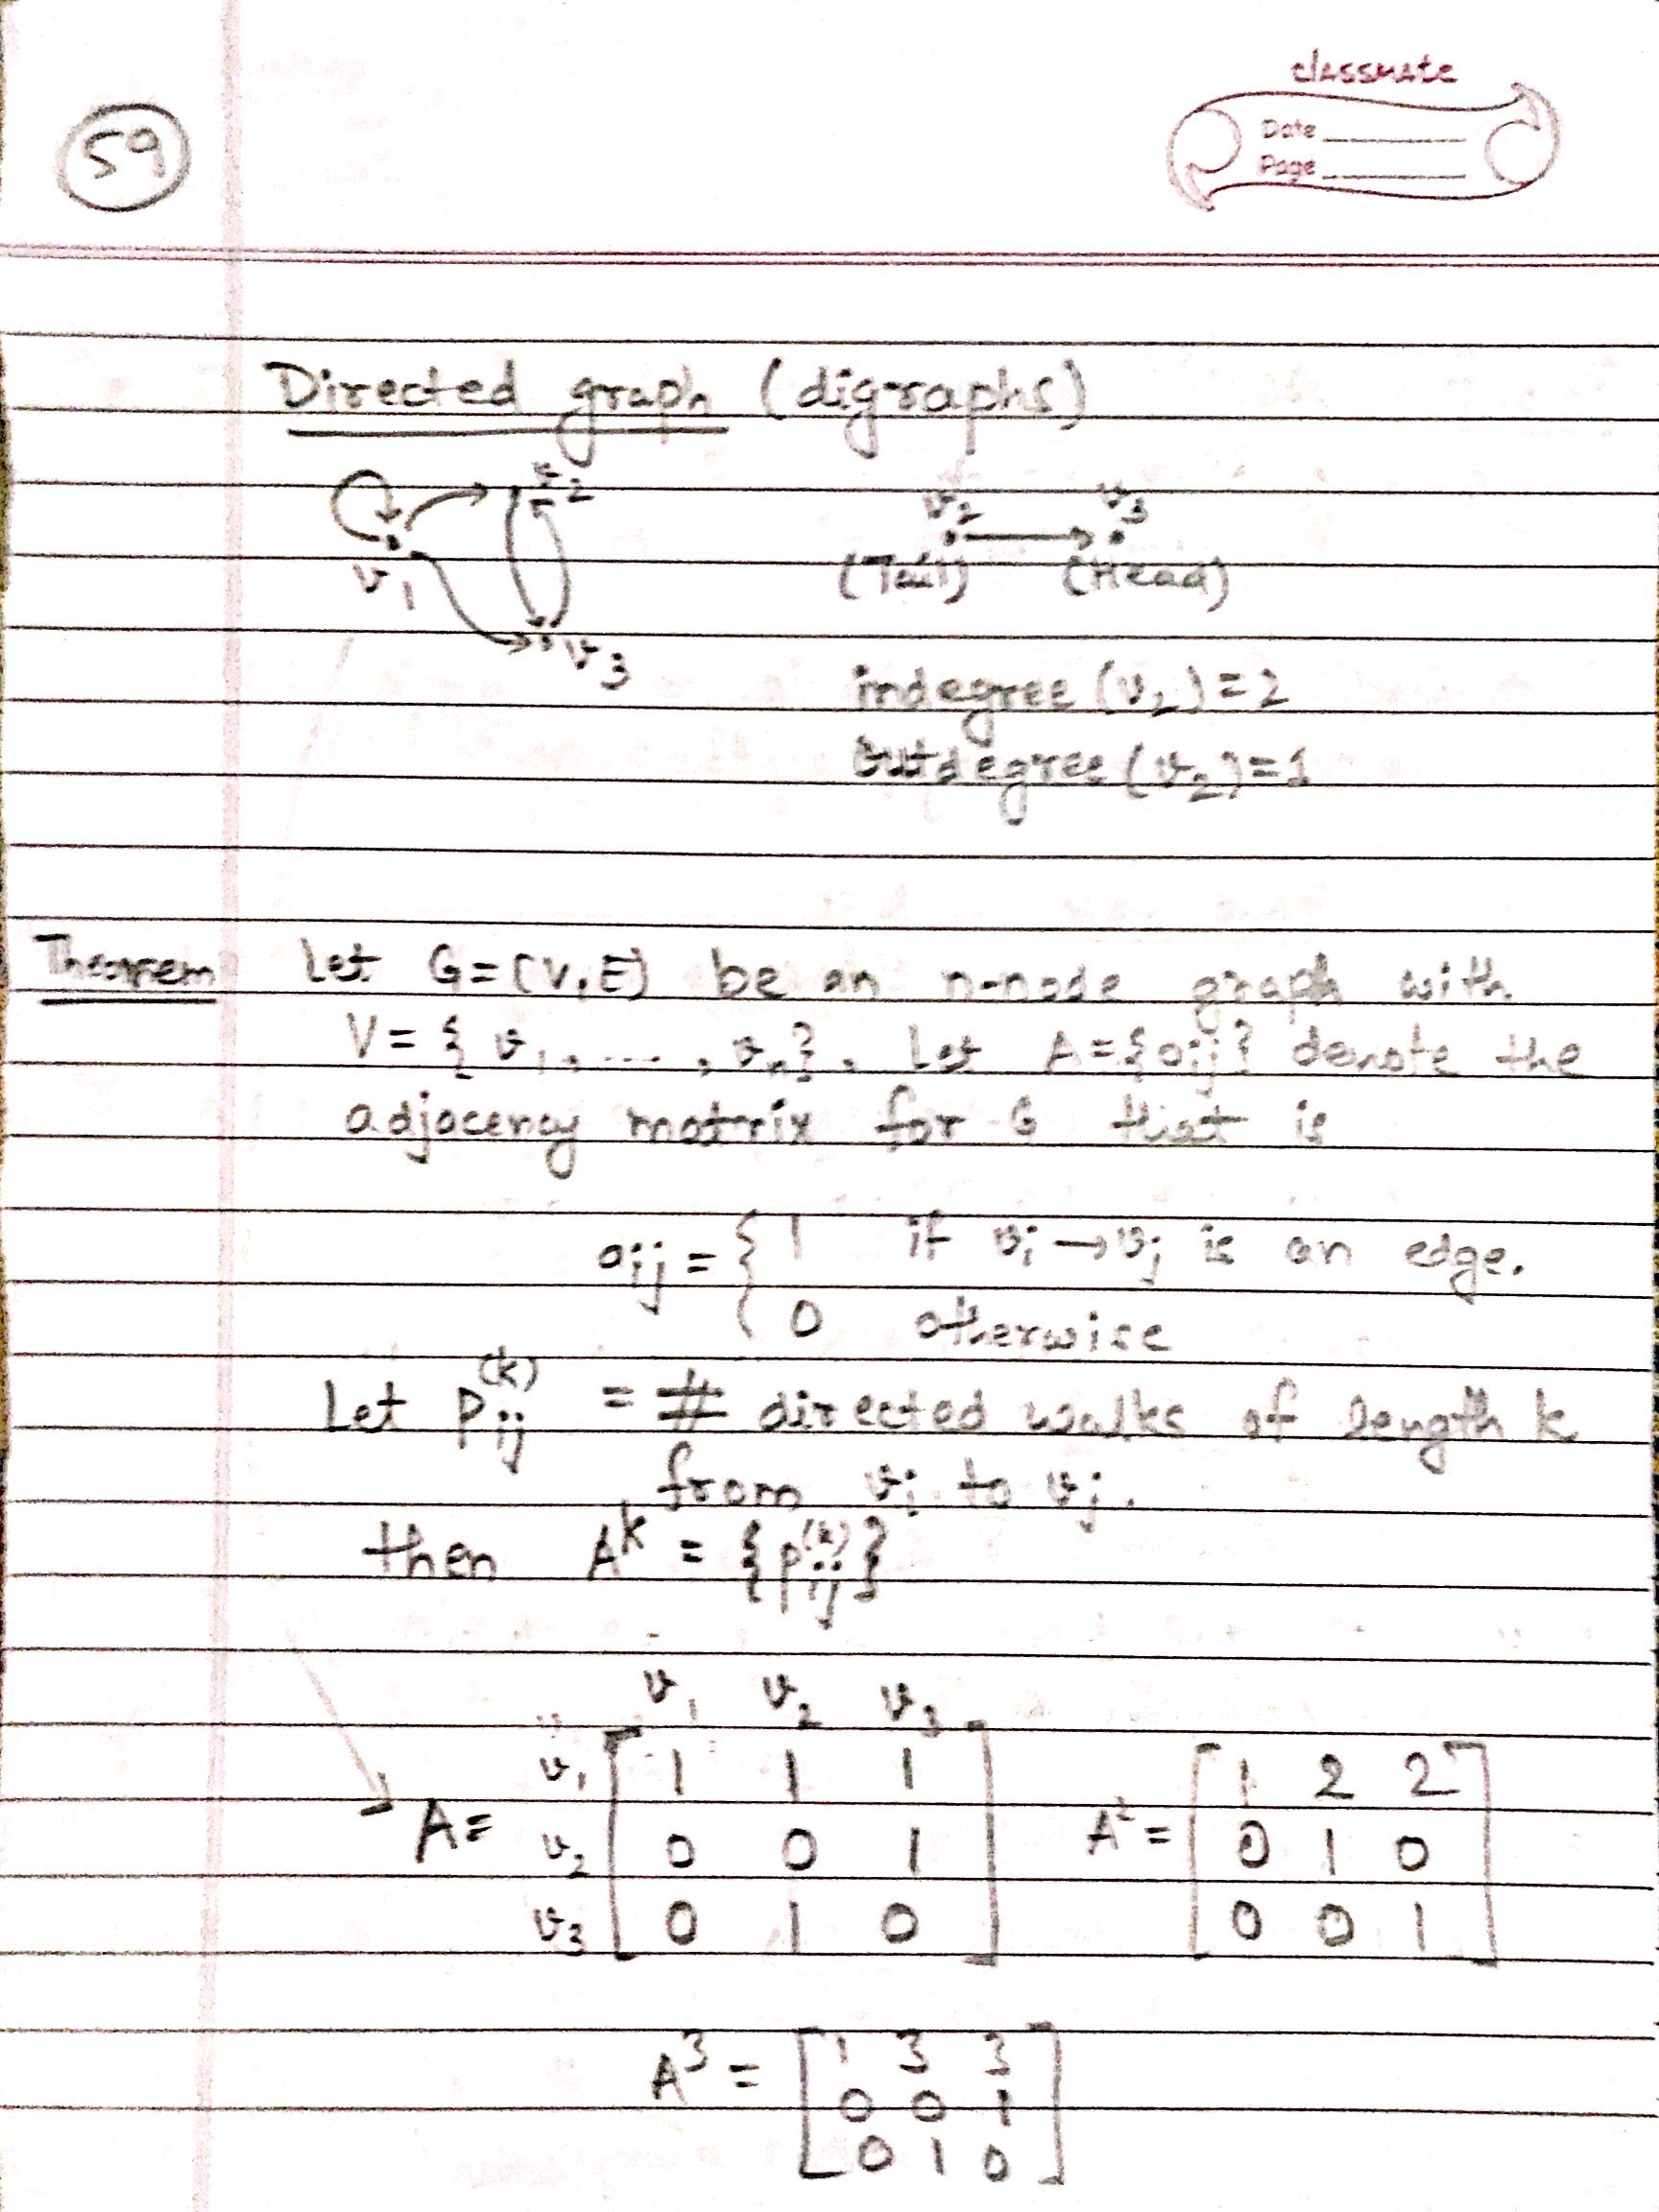 classmate
Date
Page
59
Directed graph (digraphs)
v2
v1
v3
v2 v3
(Tail) (Head)
indegree (v2) = 2
outdegree (v2) = 1
Theorem Let G = (V, E) be an n-node graph with
V = { v1, ...., vn}. Let A = {aij} denote the
adjacency matrix for G that is
aij = { 1 if vi → vj is an edge.
0 otherwise
Let Pij(k) = # directed walks of length k
from vi to vj.
then A^k = {Pij(k)}
v1 v2 v3
v1 1 1 1
A = v2 0 0 1
v3 0 1 0
A² = [1 2 2
0 1 0
0 0 1]
A³ = [1 3 3
0 0 1
0 1 0]